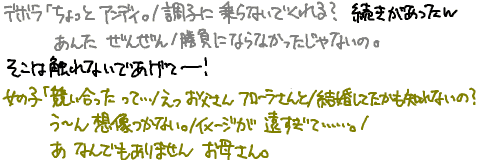 デボラ「ちょっと アンディ。/調子に 乗らないでくれる? 続きがあったんかい
あんた ぜんぜん/勝負にならなかったじゃないの。
そこは触れないであげてー!
女の子「競い合った って…/えっ お父さん フローラさんと/結婚してたかも知れないの?
う~ん 想像つかない。/イメージが 遠すぎて……。/
あ なんでもありません お母さん。